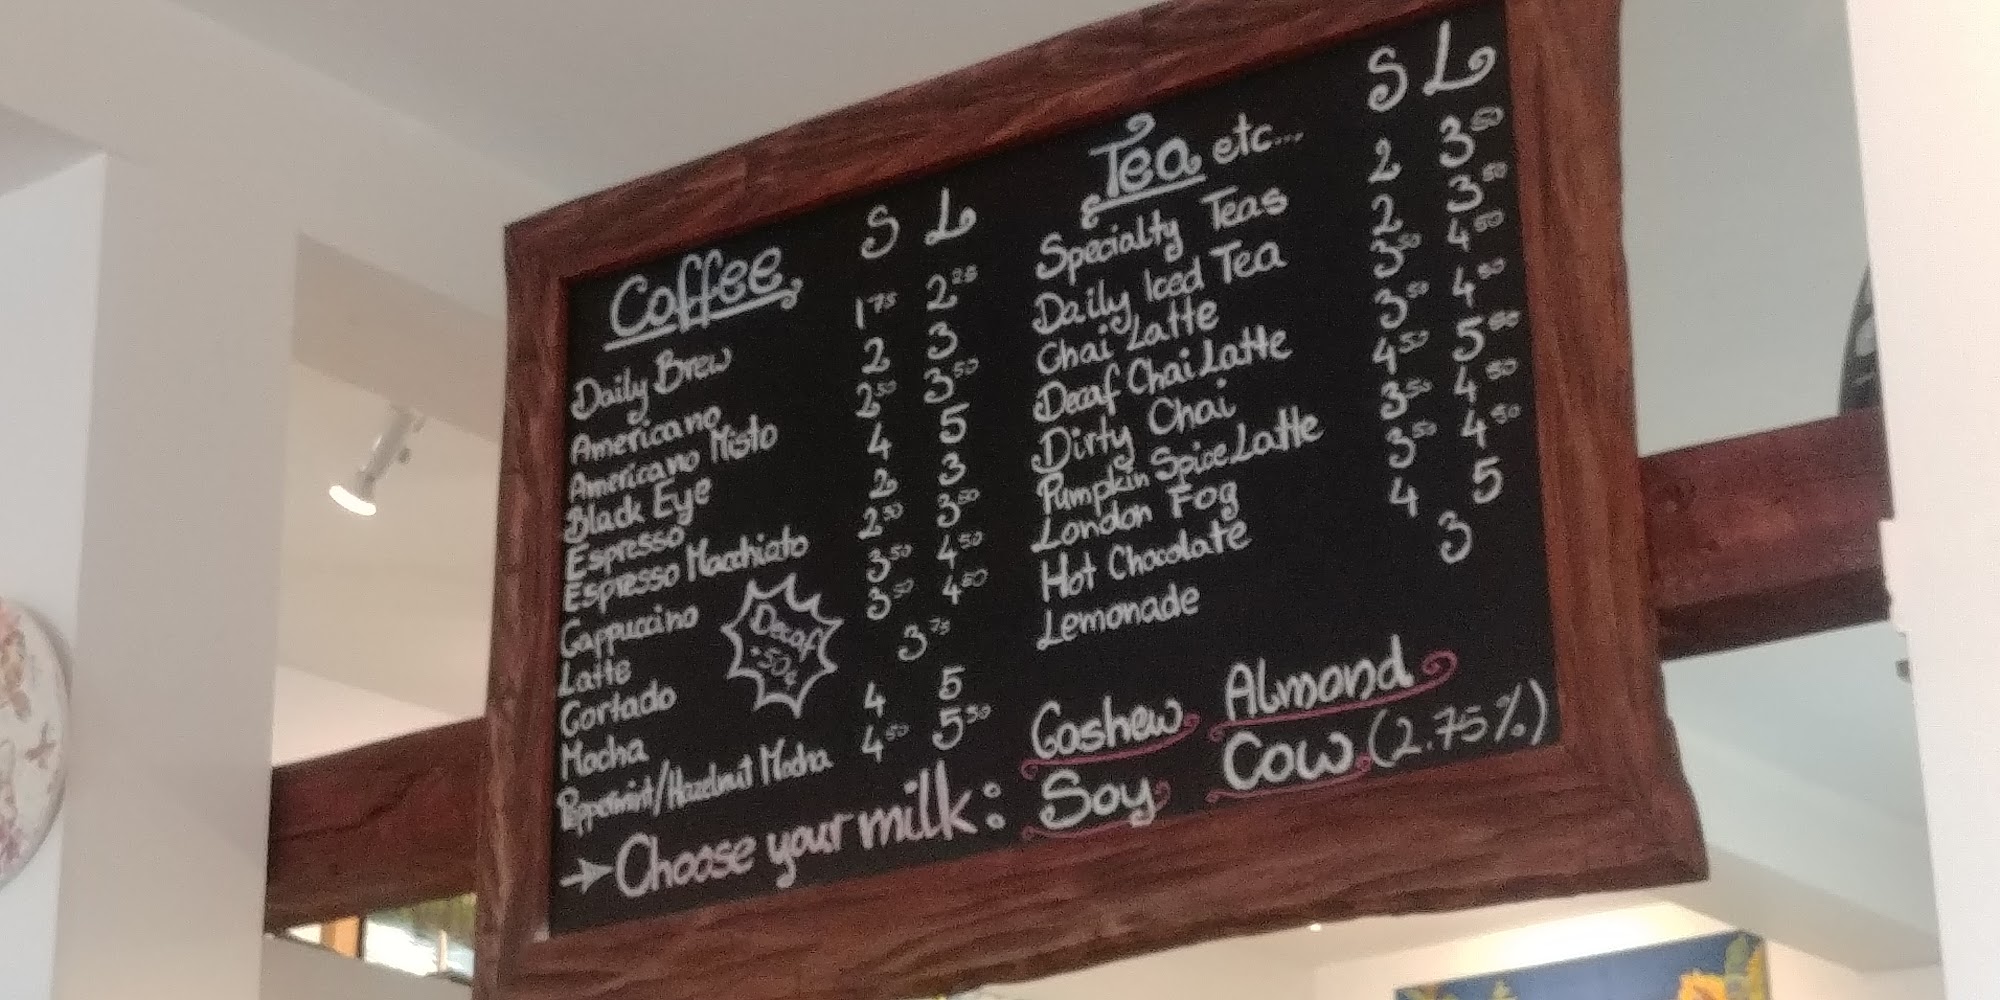 Coffee S L
Daily Brew 1.75 2.25
Americano 2 3
Americano Misto 2.50 3.50
Black Eye 4 5
Espresso 2 3
Espresso Macchiato 2.50 3.50
Cappuccino 3.50 4.50
Latte 3.50 4.50
Cortado 3.75
Mocha 4 5
Peppermint/Hazelnut Mocha 4.50 5.50
Decaf
.50¢
Tea etc... S L
Specialty Teas 2 3.50
Daily Iced Tea 2 3.50
Chai Latte 3.50 4.50
Decaf Chai Latte 3.50 4.50
Dirty Chai 4.50 5.50
Pumpkin Spice Latte 3.50 4.50
London Fog 3.50 4.50
Hot Chocolate 4 5
Lemonade 3
→ Choose your milk: Cashew Almond
Soy Cow (2.75%)